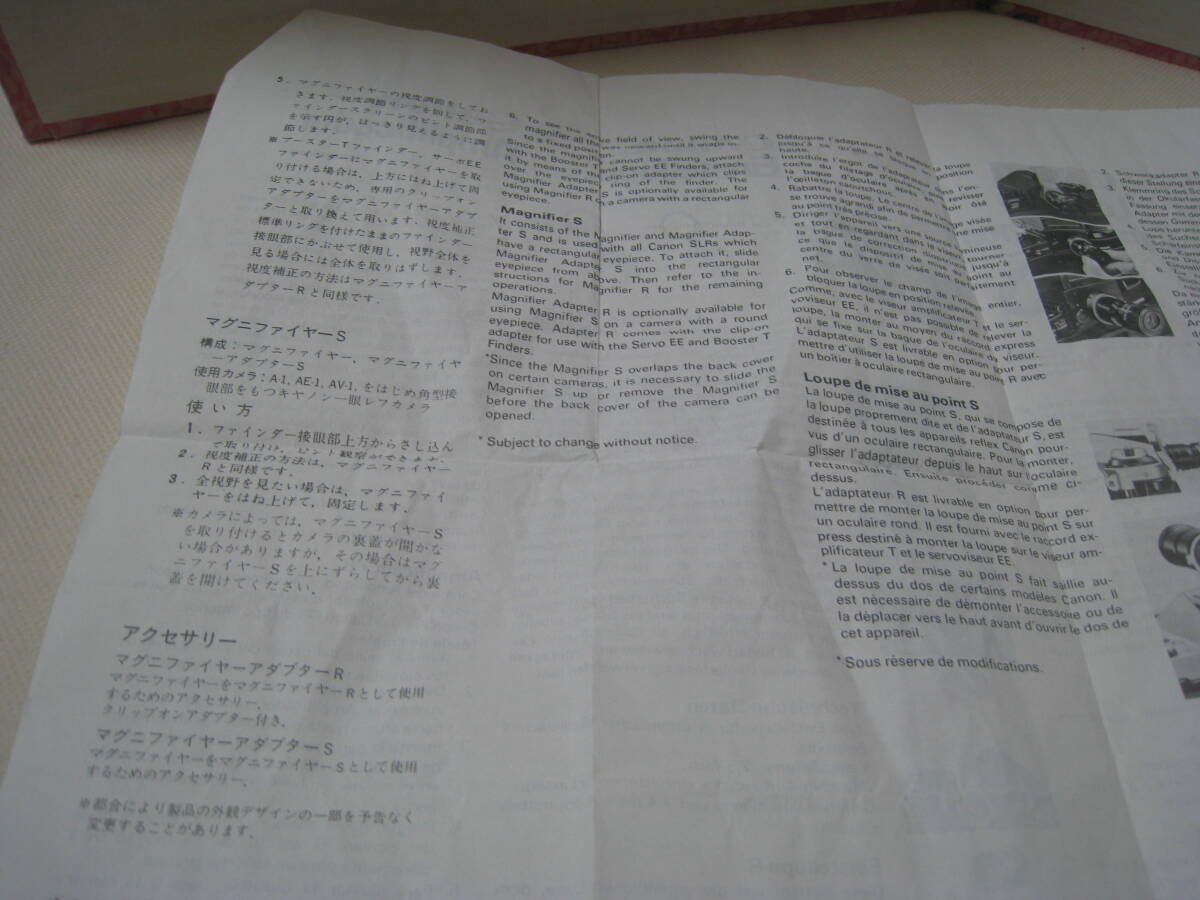 5. マグニファイヤーの視度調節をしてお
きます。視度調節リングを回して、フ
ァインダースクリーンのピント調節部
を示す円が、はっきり見えるように調
節します。
※ブースターTファインダー、サーボEE
ファインダーにマグニファイヤーを取
り付ける場合は、上方にはね上げて固
定できないため、専用のクリップオン
アダプターをマグニファイヤーアダプ
ターと取り換えて用います。視度補正
標準リングを付けたままのファインダー
接眼部にかぶせて使用し、視野全体を
見る場合には全体を取りはずします。
視度補正の方法はマグニファイヤーア
ダプターRと同様です。
マグニファイヤーS
構成：マグニファイヤー、マグニファイヤ
ーアダプターS
使用カメラ：A-1, AE-1, AV-1, をはじめ角型接
眼部をもつキヤノン一眼レフカメラ
使い方
1. ファインダー接眼部上方からさし込ん
で取り付け、ピント観察ができます。
2. 視度補正の方法は、マグニファイヤー
Rと同様です。
3. 全視野を見たい場合は、マグニファイ
ヤーをはね上げて、固定します。
※カメラによっては、マグニファイヤーS
を取り付けるとカメラの裏蓋が開かな
い場合がありますが、その場合はマグ
ニファイヤーSを上にずらしてから裏
蓋を開けてください。
アクセサリー
マグニファイヤーアダプターR
マグニファイヤーをマグニファイヤーRとして使用
するためのアクセサリー。
クリップオンアダプター付き。
マグニファイヤーアダプターS
マグニファイヤーをマグニファイヤーSとして使用
するためのアクセサリー。
※都合により製品の外観デザインの一部を予告なく
変更することがあります。
6. To see the
magnifier all the
to a fixed
field of view, swing the
Since the magnifier cannot be swung upward
with the Booster T and Servo EE Finders, attach
it by means of the clip-on adapter which clips
over the eyepiece ring of the finder. The
Magnifier Adapter S is optionally available for
using Magnifier R on a camera with a rectangular
eyepiece.
Magnifier S
It consists of the Magnifier and Magnifier Adap-
ter S and is used with all Canon SLRs which
have a rectangular eyepiece. To attach it, slide
Magnifier Adapter S into the rectangular
eyepiece from above. Then refer to the in-
structions for Magnifier R for the remaining
operations.
Magnifier Adapter R is optionally available for
using Magnifier S on a camera with a round
eyepiece. Adapter R comes with the clip-on
adapter for use with the Servo EE and Booster T
Finders.
*Since the Magnifier S overlaps the back cover
on certain cameras, it is necessary to slide the
Magnifier S up or remove the Magnifier S
before the back cover of the camera can be
opened.
* Subject to change without notice.
2. Débloquer l'adaptateur R et
jusqu'à ce qu'elle se bloque en position
haute.
3. Introduire l'ergot de l'adaptateur dans l'en-
coche du filetage d'oculaire
la bague d'oculaire
l'œilleton caoutchouc après
4. Rabattre la loupe. Le centre de l'image visée
se trouve agrandi afin de permettre une mise
au point très précise.
5. Diriger l'appareil vers une source lumineuse
et tout en regardant dans le viseur, tourner
la bague de correction dioptrique jusqu'à
ce que le dispositif de mise au point au
centre du verre de visée soit parfaitement
net.
6. Pour observer le champ de l'image entier,
bloquer la loupe en position relevée.
Comme, avec le viseur amplificateur T et le ser-
voviseur EE, il n'est pas possible de relever la
loupe, la monter au moyen du raccord express
qui se fixe sur la bague de l'oculaire du viseur.
L'adaptateur S est livrable en option pour per-
mettre d'utiliser la loupe de mise au point R avec
un boîtier à oculaire rectangulaire.
Loupe de mise au point S
La loupe de mise au point S, qui se compose de
la loupe proprement dite et de l'adaptateur S, est
destinée à tous les appareils reflex Canon pour-
vus d'un oculaire rectangulaire. Pour la monter,
glisser l'adaptateur depuis le haut sur l'oculaire
rectangulaire. Ensuite procéder comme ci-
dessus.
L'adaptateur R est livrable en option pour per-
mettre de monter la loupe de mise au point S sur
un oculaire rond. Il est fourni avec le raccord ex-
press destiné à monter la loupe sur le viseur am-
plificateur T et le servoviseur EE.
* La loupe de mise au point S fait saillie au-
dessus du dos de certains modèles Canon. Il
est nécessaire de démonter l'accessoire ou de
la déplacer vers le haut avant d'ouvrir le dos de
cet appareil.
* Sous réserve de modifications.
2. Schwenkadapter R
dieser Stellung
3.
in der Okularfassung
4.
5.
6.